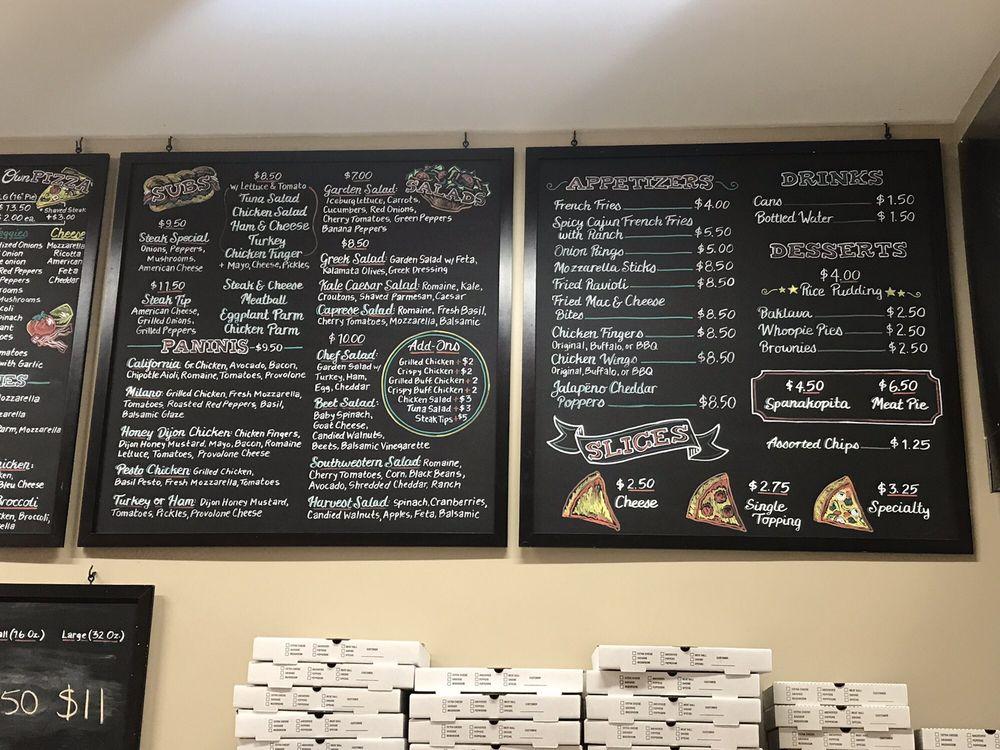 Own PIZZA
$13.50
$2.00 ea.
+Shaved Steak
+$3.00
Veggies
Cheese
Onions Mozzarella
Onion Ricotta
onion American
Red Peppers Feta
Peppers Cheddar
Mushrooms
with Garlic
Mozzarella
Parm, Mozzarella
Bleu Cheese
Broccoli
Broccoli,
SUBS
$9.50
Steak Special
Onions, Peppers,
Mushrooms,
American Cheese
$11.50
Steak Tip
American Cheese,
Grilled Onions,
Grilled Peppers
$8.50
w/Lettuce & Tomato
Tuna Salad
Chicken Salad
Ham & Cheese
Turkey
Chicken Finger
+ Mayo, Cheese, Pickles
Steak & Cheese
Meatball
Eggplant Parm
Chicken Parm
PANINIS $9.50
California: Gr. Chicken, Avocado, Bacon,
Chipotle Aioli, Romaine, Tomatoes, Provolone
Milano: Grilled Chicken, Fresh Mozzarella,
Tomatoes, Roasted Red Peppers, Basil,
Balsamic Glaze
Honey Dijon Chicken: Chicken Fingers,
Dijon Honey Mustard, Mayo, Bacon, Romaine
Lettuce, Tomatoes, Provolone Cheese
Pesto Chicken: Grilled Chicken,
Basil Pesto, Fresh Mozzarella, Tomatoes
Turkey or Ham: Dijon Honey Mustard,
Tomatoes, Pickles, Provolone Cheese
SALADS
$7.00
Garden Salad:
Iceburg lettuce, Carrots,
Cucumbers, Red Onions,
Cherry Tomatoes, Green Peppers
Banana Peppers
$8.50
Greek Salad: Garden Salad w/ Feta,
Kalamata Olives, Greek Dressing
Kale Caesar Salad: Romaine, Kale,
Croutons, Shaved Parmesan, Caesar
Caprese Salad: Romaine, Fresh Basil,
Cherry Tomatoes, Mozzarella, Balsamic
$10.00
Chef Salad:
Garden Salad w/
Turkey, Ham,
Egg, Cheddar
Beet Salad:
Baby Spinach,
Goat Cheese,
Candied Walnuts,
Beets, Balsamic Vinegarette
Southwestern Salad: Romaine,
Cherry Tomatoes, Corn, Black Beans,
Avocado, Shredded Cheddar, Ranch
Harvest Salad: Spinach, Cranberries,
Candied Walnuts, Apples, Feta, Balsamic
Add-Ons
Grilled Chicken + $2
Crispy Chicken + $2
Grilled Buff. Chicken + 2
Crispy Buff. Chicken + 2
Chicken Salad + $3
Tuna Salad + $3
Steak Tips + $5
APPETIZERS
French Fries $4.00
Spicy Cajun French Fries
with Ranch $5.50
Onion Rings $5.00
Mozzarella Sticks $8.50
Fried Ravioli $8.50
Fried Mac & Cheese
Bites $8.50
Chicken Fingers $8.50
Original, Buffalo, or BBQ
Chicken Wings $8.50
Original, Buffalo, or BBQ
Jalapeño Cheddar
Poppers $8.50
DRINKS
Cans $1.50
Bottled Water $1.50
DESSERTS
$4.00
Rice Pudding
Baklava $2.50
Whoopie Pies $2.50
Brownies $2.50
$4.50 $6.50
Spanakopita Meat Pie
Assorted Chips $1.25
SLICES
$2.50
Cheese
$2.75
Single
Topping
$3.25
Specialty
(16 Oz.) Large (32 Oz.)
50 $11